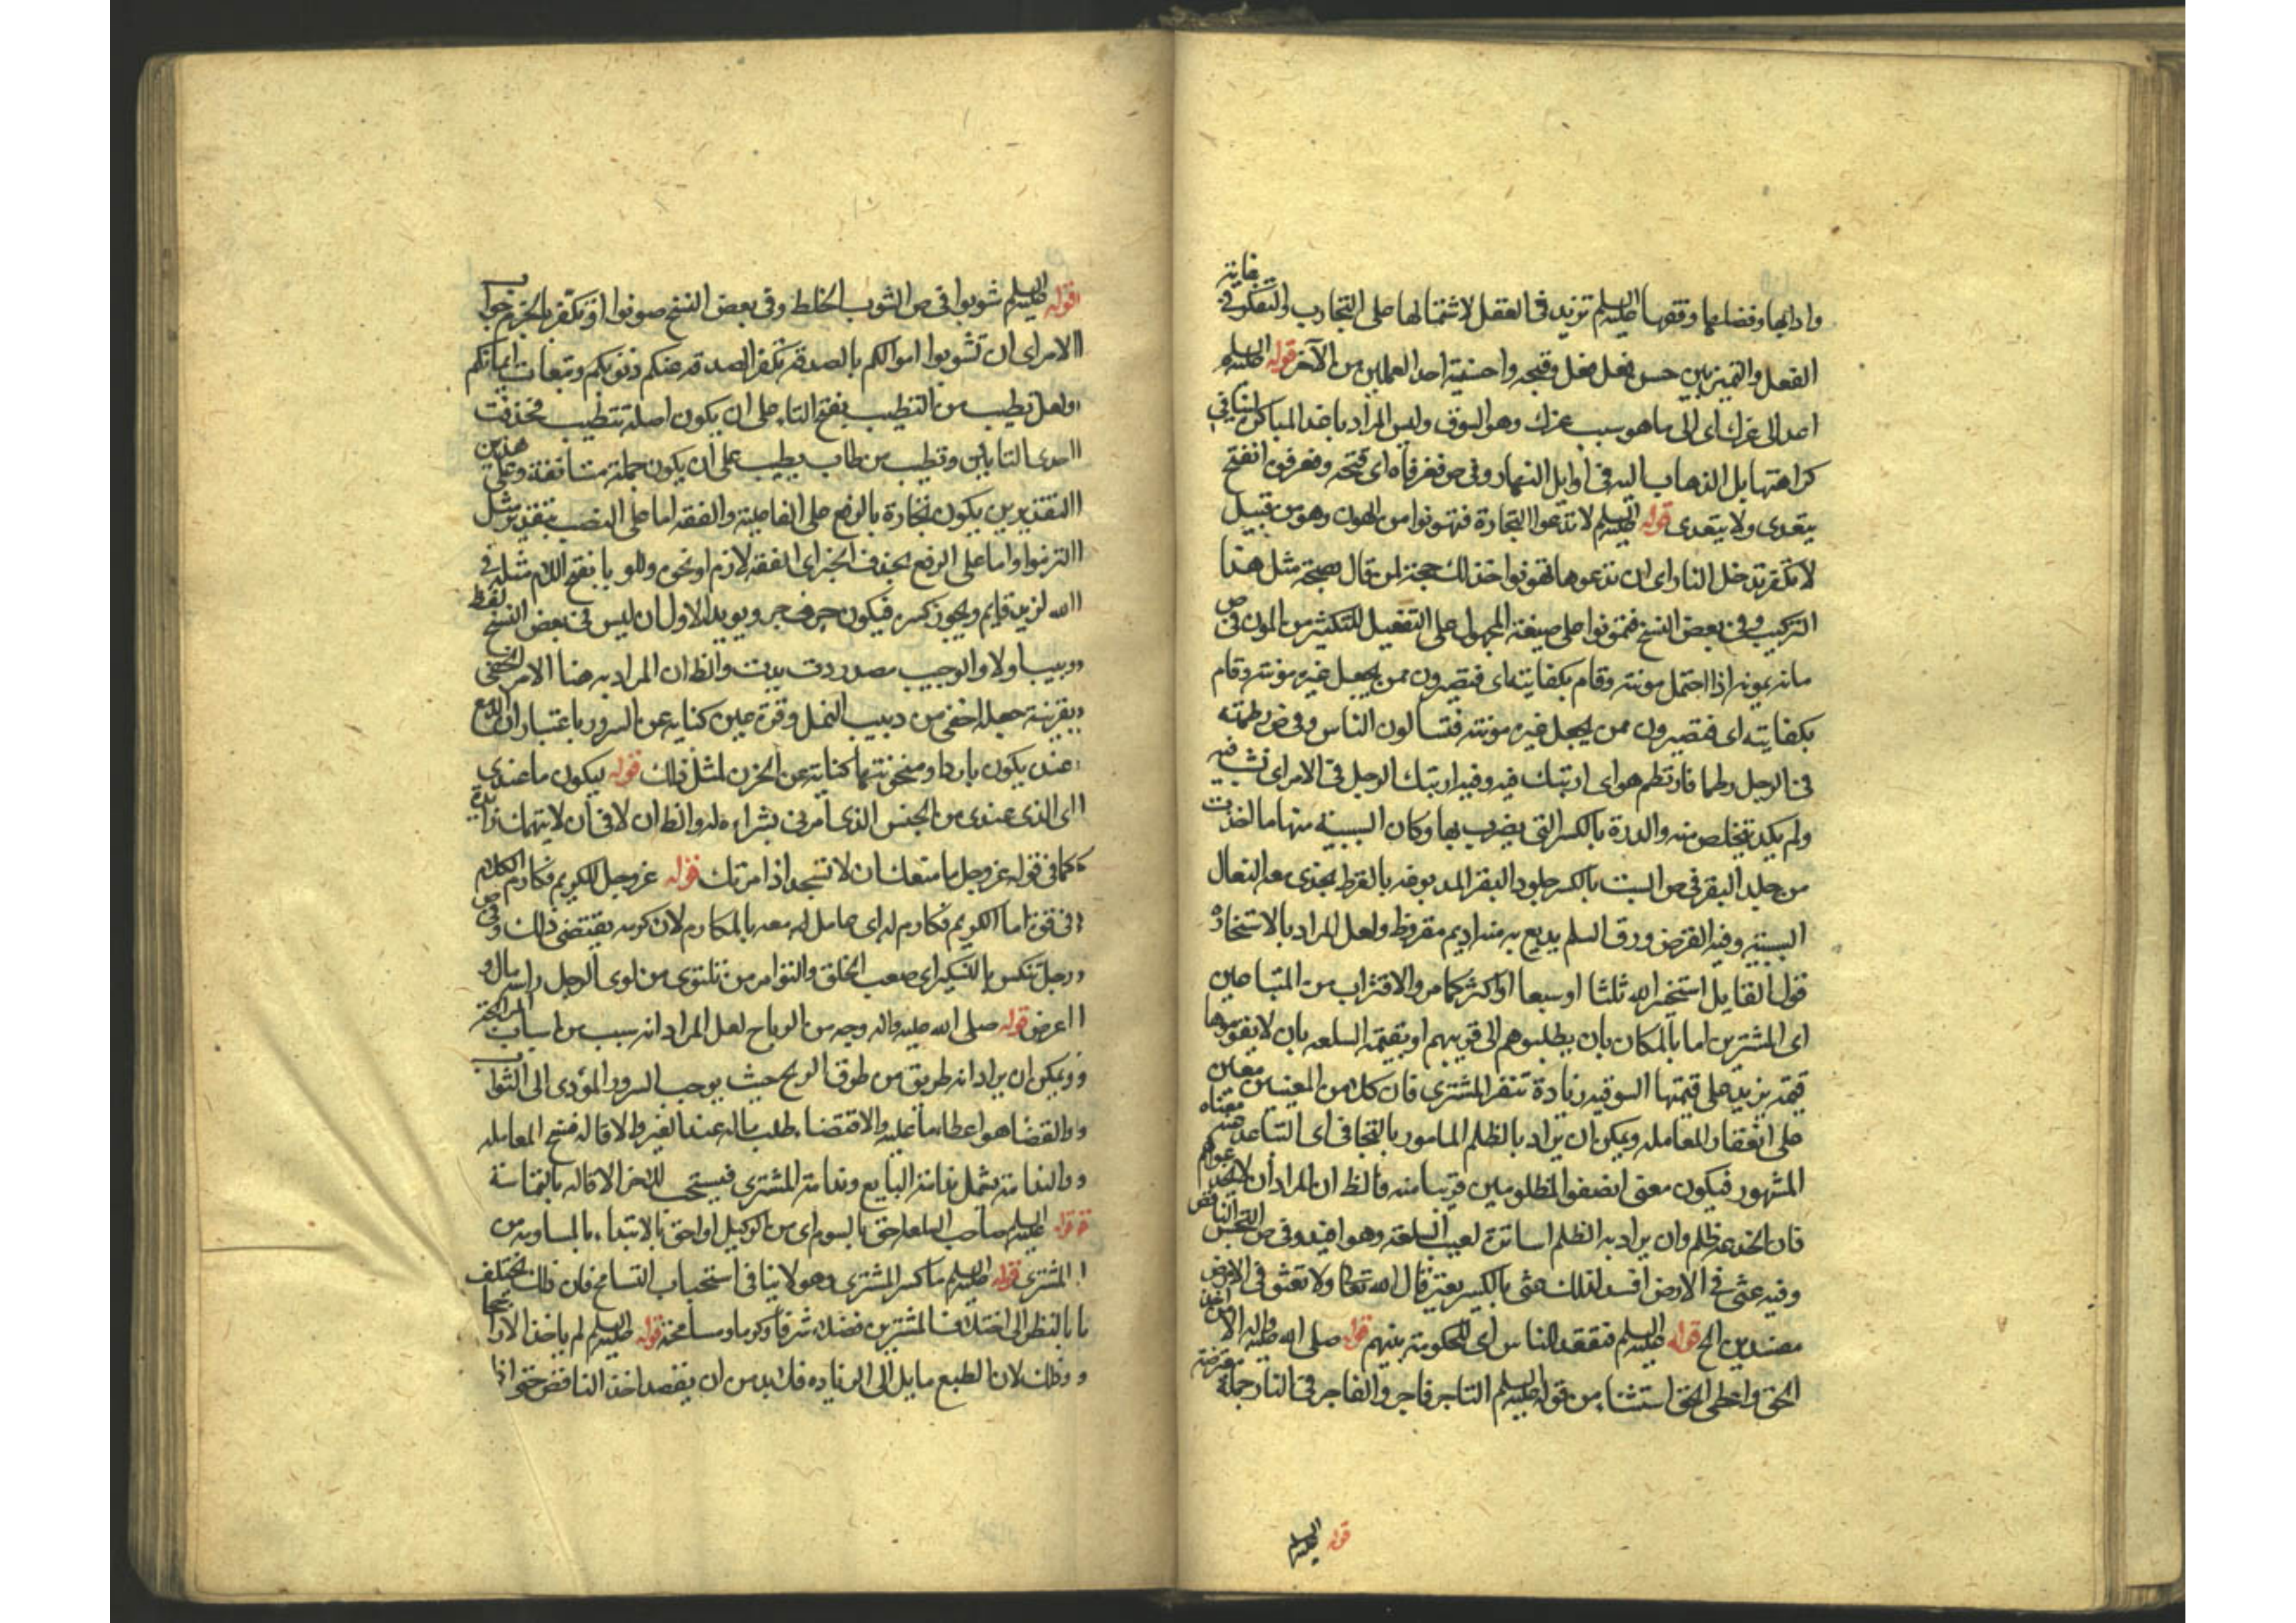 وادابها وفضلها وفقهها عليه السلم تزيد في العقل لاشتمالها على التجارب والتفكر في غاية
الفعل والتميز بين حسن فعل فعل وقبحه واحسنية احد العملين من الآخر قوله عليه السلم
اغد الى عزك اى الى ما هو سبب عزك وهو السوق وليس المراد باغد المباكرة لينافي
كراهتها بل الذهاب اليه في اوايل النهار وفي ص فغرفاه اى فتحه وفغر فوه انفتح
يتعدى ولا يتعدى قوله عليه السلم لا تدعوا التجارة فتهونوا من الهون وهو من قبيل
لا تكفر تدخل النار اى ان تدعوها تهونوا فذلك حجة لمن قال بصحة مثل هذا
التركيب وفي بعض النسخ فتمونوا على صيغة المجهول على التفعيل للتكثير من المون في ص
مانه يمونه اذا احتمل مونته وقام بكفايته اى فتصيرون ممن يجعل غيره مونته وقام
بكفايته اى فتصيرون ممن يجعل غيره مونته فتسالون الناس وفي ص رطمته
في الوحل رطما فارتطم هو اى ارتبك فيه وفيه ارتبك الرجل في الامر اى نشب فيه
ولم يكد يتخلص منه والدرة بالكسر التي يضرب بها وكان السبتية منها ما اتخذت
من جلد البقر في ص السبت بالكسر جلود البقر المدبوغة بالقرظ يحذى منه النعال
السبتية وفيه القرض ورق السلم يدبغ به منه اديم مقروظ ولعل المراد بالاستخارة
قول القايل استخير الله ثلثا او سبعا او اكثر كما مر والاقتراب من المتباعين
اى المشترين اما بالمكان بان يطلبوهم الى قربهم او بقيمة السلعه بان لا يقوموها
قيمة يزيد على قيمتها السوقيه زيادة تنفر المشترى فان كلا من المعنيين معين
على انعقاد المعامله ويمكن ان يراد بالظلم المامور بالتجافى اى التباعد عنه معناه
المشهور فيكون معنى انصفوا المظلومين قريبا منه فالظ ان المراد ان لا تخدعواهم
فان الخدعة ظلم وان يراد به الظلم اساترة لعيب السلعة وهو افيد وفي ص البخس الناقص
وفيه عثى في الارض افسد لذلك عثى بالكسر يعثى قال الله تعالى ولا تعثوا في الارض
مفسدين الخ قوله عليه السلم فتقعد للناس اى للحكومة بينهم قوله صلى الله عليه واله الا من اخذ
الحق واعطى الحق استثناء من قوله عليه السلم التاجر فاجر والفاجر في النار جملة معترضة
قوله عليه السلم
قوله عليه السلم شوبوا في ص الشوب الخلط وفي بعض النسخ صونوا او تكفر بالجزم جواب
الامر اى ان تشوبوا اموالكم بالصدقة تكفر الصدقه عنكم ذنوبكم وتبعات ايمانكم
ولعل تطيب من التطيب بفتح التاء على ان يكون اصله تتطيب فحذفت
احدى التاءين وتطيب من طاب يطيب على ان يكون جملة مستأنفة وعلى هذين
التقديرين يكون تجارة بالرفع على الفاعلية والفقه اما على النصب بتقدير مثل
التزموا واما على الرفع بحذف الخبر اى الفقه لازم او نحوه وللربا بفتح اللام مثله في
الله لزيد قايم ويجوز كسره فيكون حرف جر ويويد الاول ان ليس في بعض النسخ لفظ
دبيبا ولا والدبيب مصدر دب يدب والظ ان المراد به هنا الامر الخفي
بقرينة جعله اخفى من دبيب النمل وقرة عين كناية عن السرور باعتبار ان الدمع
عنده يكون باردا وسخونتهما كناية عن الحزن لمثل ذلك قوله ليكون ما عندى
اى الذى عندى من الجنس الذى أمرنى بشراءه له والظ ان لا في أن لا يتهمك زايدة
كما في قوله عز وجل ما منعك ان لا تسجد اذ امرتك قوله عز وجل للكريم فكارم الكلام
في قوة اما الكريم فكارم له اى عامل له معه بالمكارم لان كرمه يقتضى ذلك وفي ص
رجل شكس بالتسكين اى صعب الخلق والتوا مر من تلتوى من لوى الرجل راسه مال و
اعرض قوله صلى الله عليه واله وجه من الرباح لعل المراد انه سبب من اسباب المرابحة
ويمكن ان يراد انه طريق من طرق الربح حيث يوجب السرور المؤدى الى الثواب
والقضا هو اعطاء ما عليه والاقتضاء طلب ماله عند الغير والاقاله فسخ المعامله
والندامة يشمل ندامة البايع وندامة المشترى فيستحب للاخر الاقاله بالتماسه
قوله عليه السلم صاحب السلعه احق بالسوم اى من الوكيل او احق بالابتداء بالمساومه من
المشترى قوله عليه السلم ماكس المشترى وهو لا ينافى استحباب التسامح فان ذلك يختلف
بالنظر الى اختلاف المشترين فضلا وشرفا وكرما ومسامحة قوله عليه السلم لم ياخذ الا راجحا
وذلك لان الطبع مايل الى الزياده فلابد من ان يقصد اخذ الناقص حتى اذا